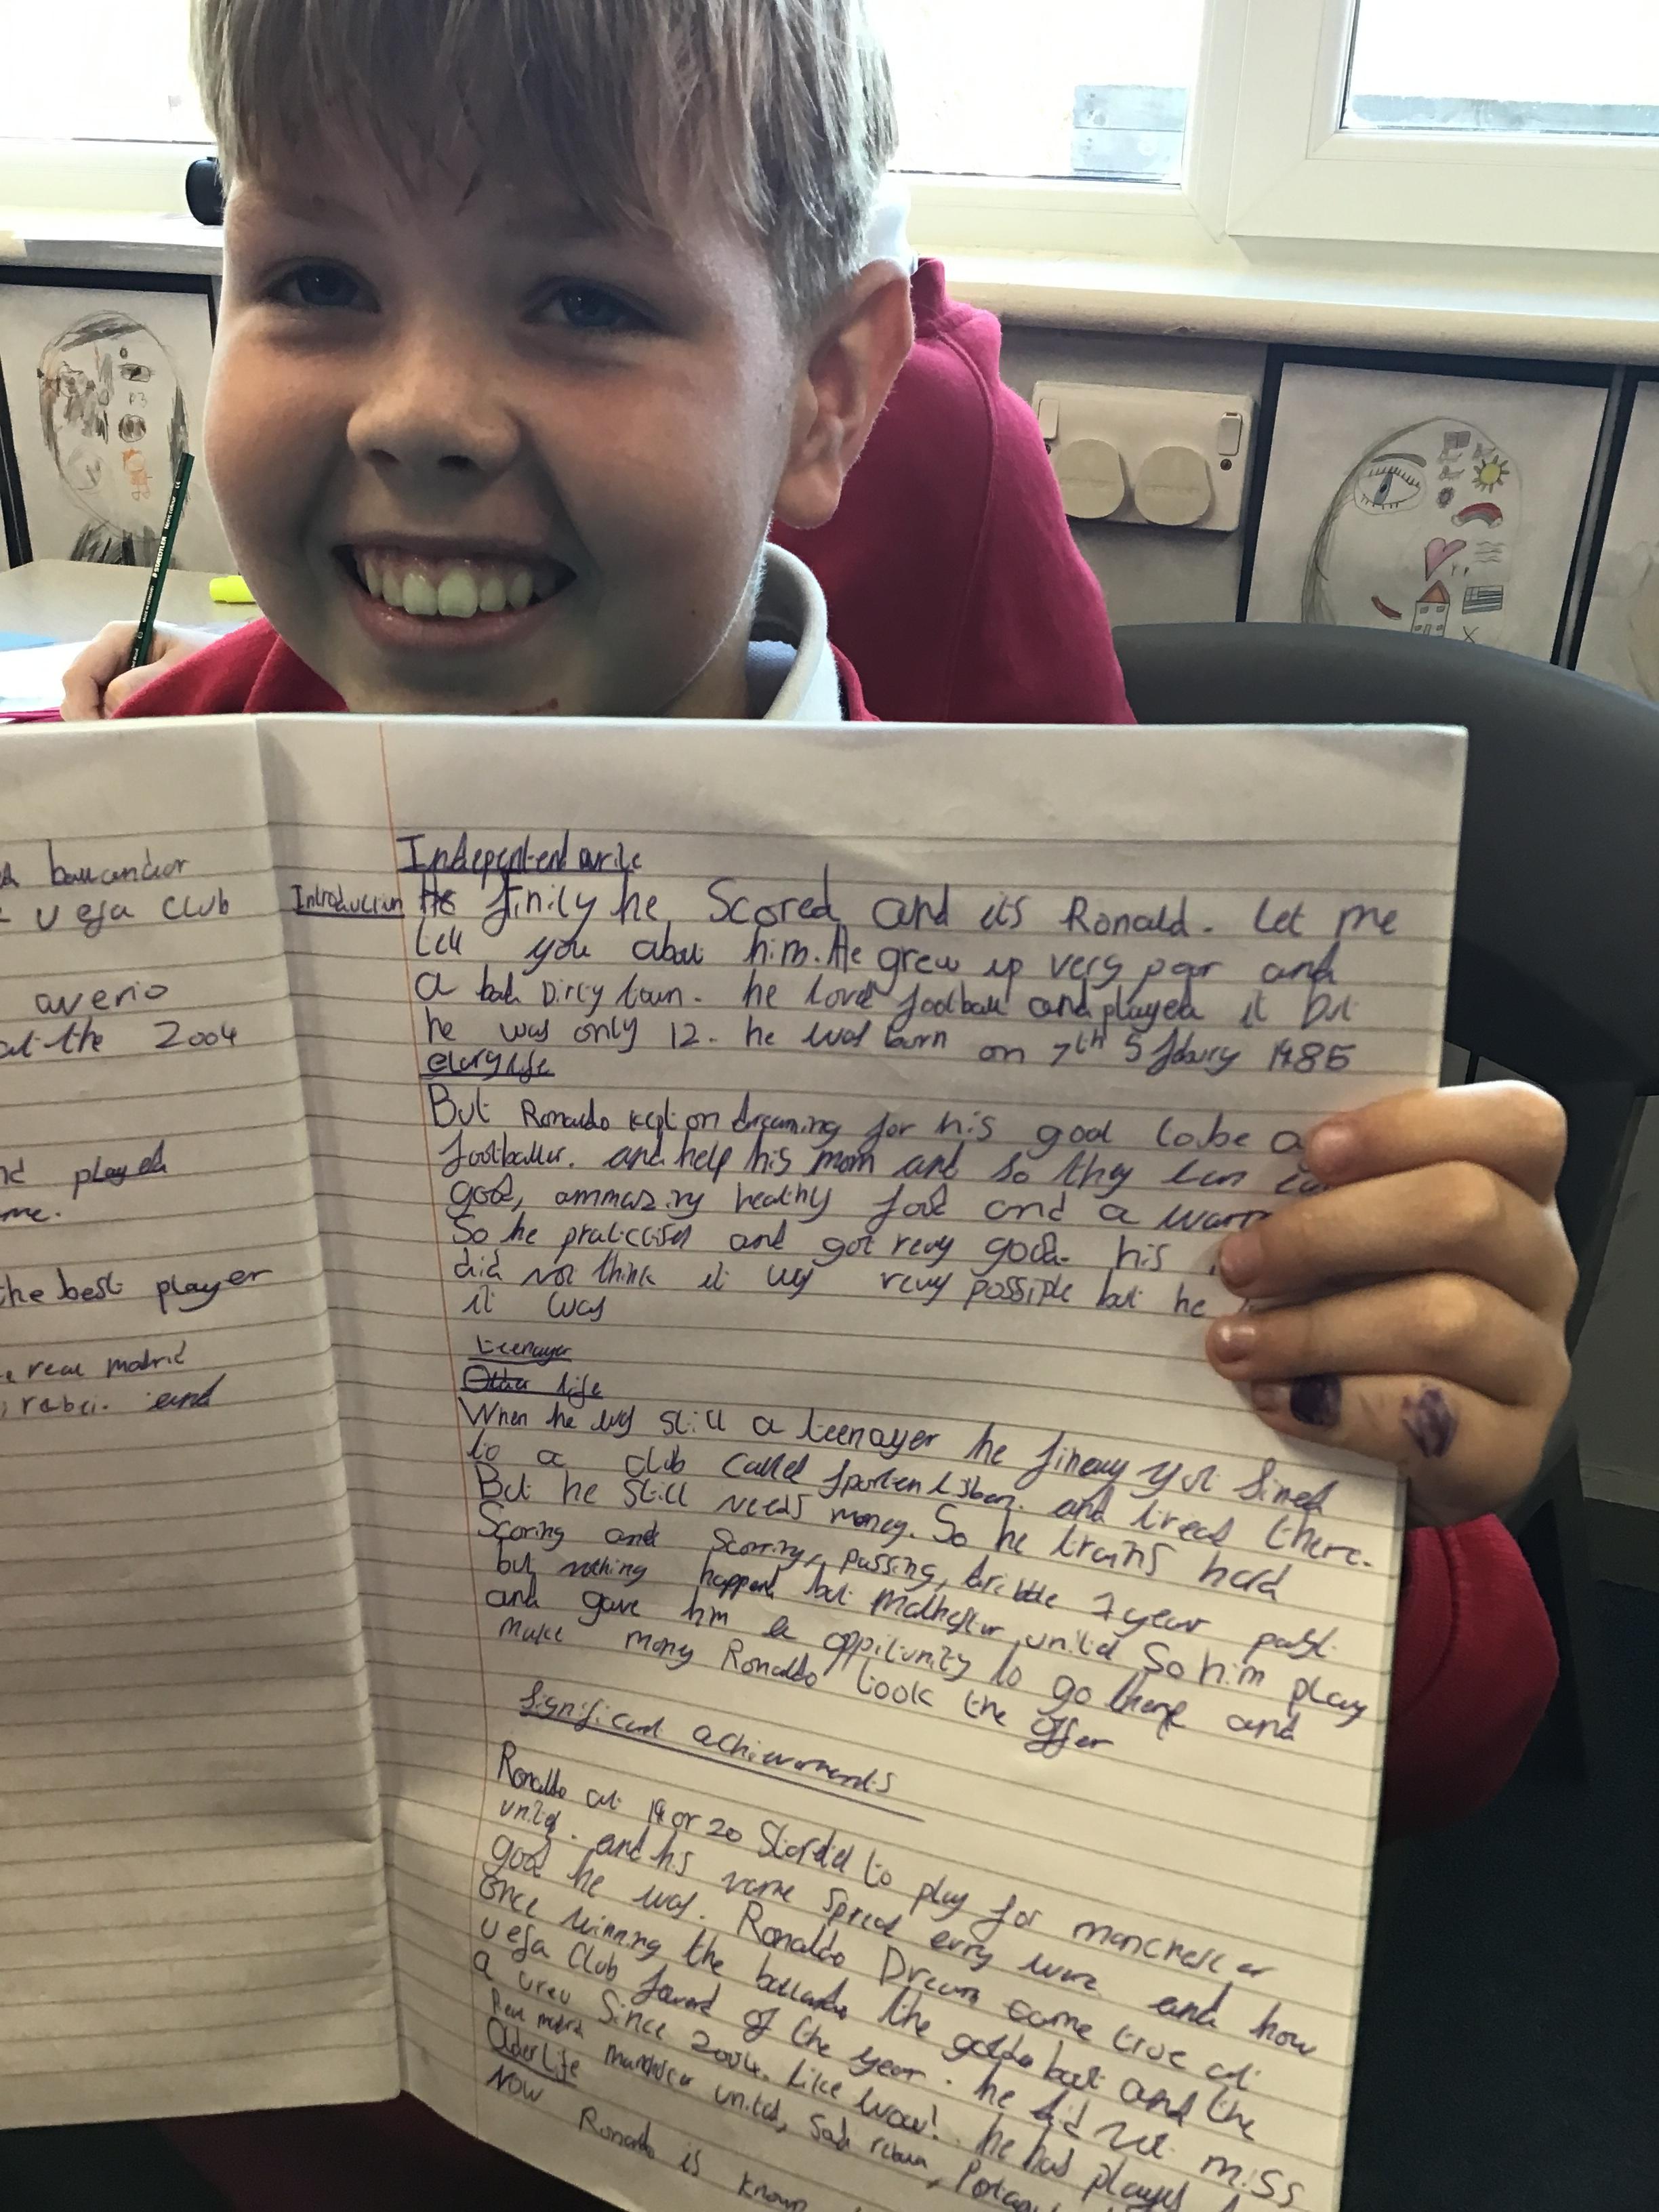 ballandor
uefa club
averio
at the 2004
nd played
me.
the best player
real madrid
and
Independent write
Introduction He finily he Scored and its Ronald. Let me
tell you about him. He grew up very poor and
a bad Dirty town. he loved football and played it but
he was only 12. he was burn on 7th 5 febury 1985
elary life
But Ronaldo kept on dreaming for his goal to be a
footballer. and help his mom and so they can
good, ammazing healthy food and a warm
So he praticcised and got revy good. his
did not think it was revy possiple but he
it was
teenager
Other life
When he was still a teenager he finaly got sined
to a club called sporten lisbon. and lived there.
But he still needs money. So he trains hard
Scoring and Scorring, passing, dribble 1 year past
but nothing happend but united So him play
and gave him a oppitunity to go there and
make mony Ronaldo took the offer
Significant achievements
Ronaldo at 19 or 20 Started to play for manchester
united. and his name spread evry were and how
good he was. Ronaldo Dream came true at
once winning the ballandor the golden boot and the
uefa Club forward of the year. he did not miss
a ureu Since 2004. Like wow! he has played
Real madrid united, Portagul
Older Life
Now Ronaldo is known
STAEDTLER